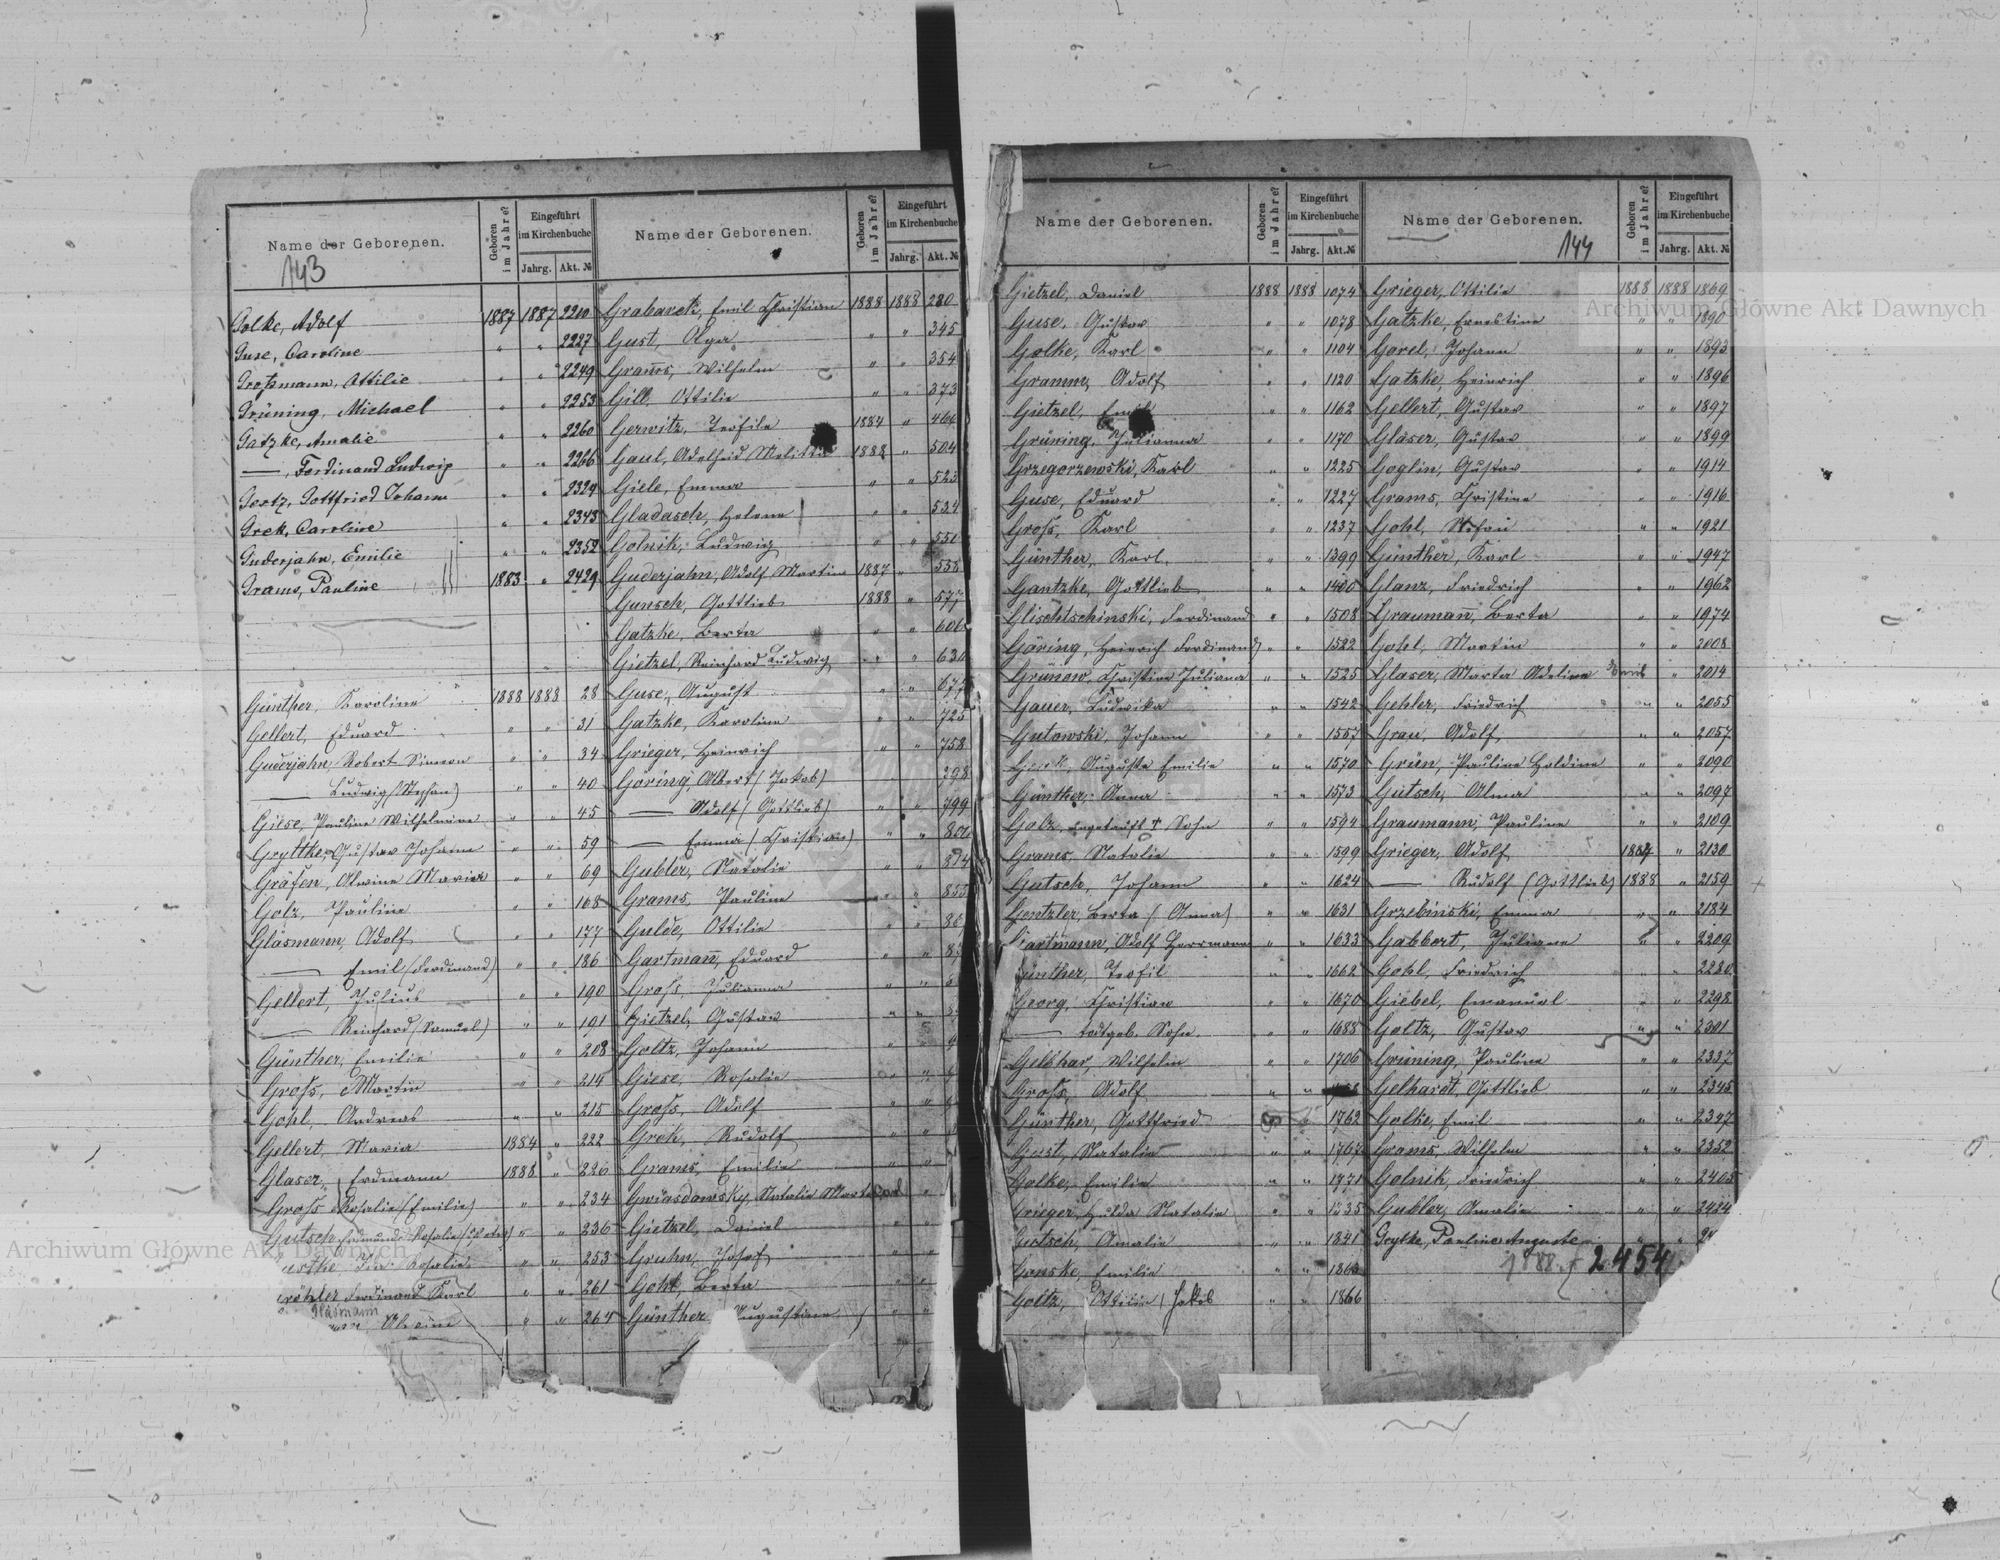 Name der Geborenen.
Geboren im Jahre?
Eingeführt im Kirchenbuche
Jahrg. Akt. №
143
Golke, Adolf 1887 1887 2210
Guse, Caroline " " 2227
Großmann, Ottilie " " 2249
Grüning, Michael " " 2253
Gatzke, Amalie " " 2260
—, Ferdinand Ludwig " " 2266
Goertz, Gottfried Johann " " 2324
Grek, Caroline " " 2343
Guderjahn, Emilie " " 2352
Grams, Pauline 1883 " 2429
Günther, Karoline 1888 1888 28
Gellert, Eduard " " 31
Guderjahn, Robert Simeon " " 34
— Ludwig (Stephan) " " 40
Giese, Pauline Wilhelmine " " 45
Gryltke, Gustav Johann " " 59
Gräfen, Alwine Maria " " 69
Golz, Pauline " " 168
Gläsmann, Adolf " " 177
— Emil (Ferdinand) " " 186
Gellert, Julius " " 190
— Reinhard (Samuel) " " 191
Günther, Emilie " " 208
Groß, Martin " " 214
Gohl, Andreas " " 215
Gellert, Maria 1884 " 222
Glaser, Erdmann 1888 " 226
Groß Rosalie (Emilie) " " 234
Gutsch, Rosalie " " 236
Rosalie " " 253
Ferdinand Karl " " 261
Gläsmann
" " 264
Name der Geborenen.
Geboren im Jahre?
Eingeführt im Kirchenbuche
Jahrg. Akt. №
Grabarek, Emil Christian 1888 1888 280
Gust, Olga " " 345
Grams, Wilhelm " " 354
Gill, Ottilie " " 373
Gerwitz, Teofile 1884 " 466
Gaul, Adelheid 1888 " 504
Giele, Emma " " 523
Gladasch, Helene " " 534
Golnik, Ludwig " " 551
Guderjahn, Adolf Martin 1887 " 555
Gunsch, Gottlieb 1888 " 577
Gatzke, Berta " " 606
Gietzel, Reinhard Ludwig " " 630
Guse, August " " 677
Gatzke, Karoline " " 725
Grieger, Heinrich " " 758
Göring, Albert (Jakob) 798
— Adolf (Gottlieb) " " 799
— Emma (Christian) " " 800
Gubler, Natalie " " 814
Grams, Pauline " " 853
Gulde, Ottilie " "
Gartmann, Eduard " "
Groß, Julianna " "
Gietzel, Gustav " "
Goltz, Johann " "
Giese, Rosalie " "
Groß, Adolf " "
Grek, Rudolf " "
Grams, Emilie " "
Gwiasdowsky, Natalie "
Gietzel, Daniel " "
Gruhn, Josef " "
Gohl, Berta " "
Günther, Augustine " "
Name der Geborenen.
Geboren im Jahre?
Eingeführt im Kirchenbuche
Jahrg. Akt. №
Gietzel, Daniel 1888 1888 1074
Guse, Gustav " " 1078
Golke, Karl " " 1104
Gramm, Adolf " " 1120
Gietzel, Emil " " 1162
Grüning, Julianna " " 1170
Grzegorzewski, Karl " " 1225
Guse, Eduard " " 1227
Groß, Karl " " 1237
Günther, Karl " " 1399
Gantzke, Gottlieb " " 1400
Glischtschinski, Ferdinand " " 1508
Göring, Heinrich Ferdinand " " 1522
Grünow, Christine Juliana " " 1525
Gauer, Ludwika " " 1542
Gutowski, Johann " " 1557
Auguste Emilie " " 1570
Günther, Anna " " 1573
Golz, ungetauft † Sohn " " 1594
Grams, Natalie " " 1599
Gutsch, Johann " " 1624
Gentzler, Berta (Anna) " " 1631
Gartmann, Adolf Herrmann " " 1633
Günther, Teofil " " 1662
Georg, Christian " " 1670
— todtgeb. Sohn " " 1688
Gelbhar, Wilhelm " " 1706
Groß, Adolf " "
Günther, Gottfried " 1762
Gust, Natalie " " 1767
Golke, Emilie " " 1771
Grieger, Hulda Natalie " " 1835
Gutsch, Amalie " " 1841
Gonske, Emilie " " 1865
Goltz, Ottilie / Jakob " " 1866
Name der Geborenen.
Geboren im Jahre?
Eingeführt im Kirchenbuche
Jahrg. Akt. №
144
Grieger, Ottilie 1888 1888 1869
Gatzke, Ernestine " " 1890
Gorel, Johann " " 1893
Gatzke, Heinrich " " 1896
Gellert, Gustav " " 1897
Gläser, Gustav " " 1899
Goglin, Gustav " " 1914
Grams, Christine " " 1916
Gohl, Stefan " " 1921
Günther, Karl " " 1947
Glanz, Friedrich " " 1962
Graumann, Berta " " 1974
Gohl, Martin " " 2008
Glaser, Marta Adeline " " 2014
Gehler, Friedrich " " 2055
Grau, Adolf " " 2057
Grün, Pauline Holdine " " 2090
Gutsch, Alma " " 2097
Graumann, Pauline " " 2109
Grieger, Adolf 1884 " 2130
— Rudolf (Gottlieb) 1888 " 2159
Grzebinski, Emma " " 2184
Gabbert, Juliane " " 2209
Gohl, Friedrich " " 2220
Giebel, Emanuel " " 2298
Goltz, Gustav " " 2301
Grüning, Pauline " " 2337
Gelhardt, Gottlieb " " 2345
Golke, Emil " " 2347
Grams, Wilhelm " " 2352
Golnik, Friedrich " " 2405
Gubler, Amalie " " 2424
Grytke, Pauline Auguste " "
1888. 2454
Archiwum Główne Akt Dawnych
Archiwum Główne Akt Dawnych